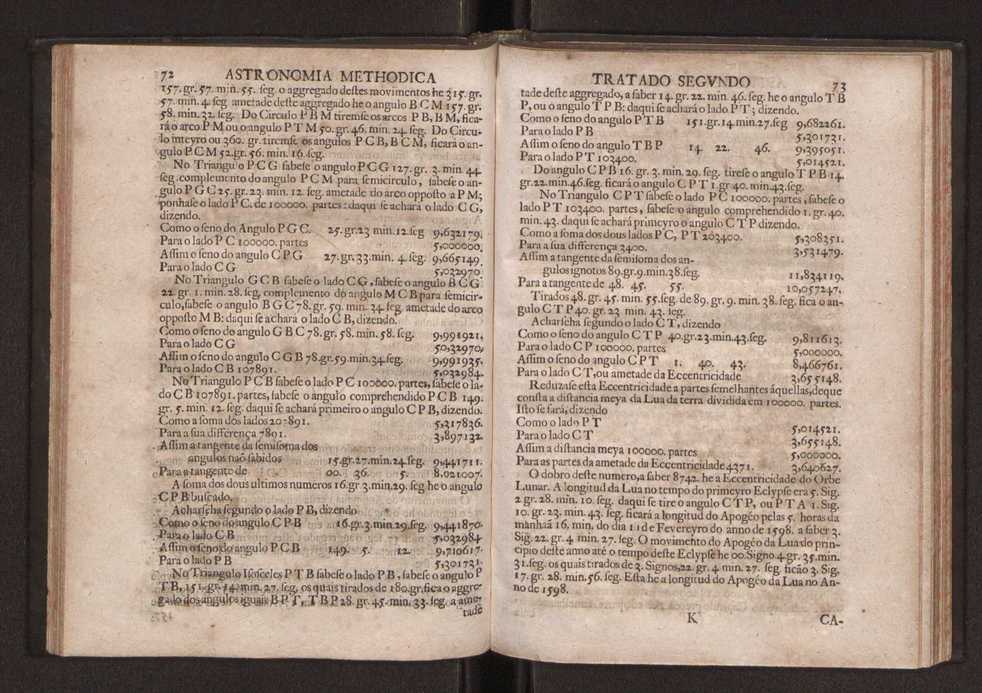 72 ASTRONOMIA METHODICA
157. gr. 57. min. 55. seg. o aggregado destes movimentos he 315. gr.
57. min. 4. seg ametade deste aggregado he o angulo B C M 157. gr.
58. min. 32. seg. Do Circulo P B M tiremse os arcos P B, B M, fica-
rá o arco P M ou o angulo P T M 50. gr. 46. min. 24. seg. Do Circu-
lo inteyro ou 360. gr. tiremse os angulos P C B, B C M, ficará o an-
gulo P C M 52. gr. 56. min. 16. seg.
No Triangulo P C G sabese o angulo P C G 127. gr. 3. min. 44.
seg. complemento do angulo P C M para semicirculo, sabese o an-
gulo P G C 25. gr. 23. min. 12. seg. ametade do arco opposto a P M;
ponhase o lado P C. de 100000. partes: daqui se achará o lado C G,
dizendo.
Como o seno do Angulo P G C. 25. gr. 23 min. 12. seg 9,632179.
Para o lado P C 100000. partes 5,000000.
Assim o seno do angulo C P G 27. gr. 33. min. 4. seg. 9,665149.
Para o lado C G 5,032970
No Triangulo G C B sabese o lado C G, sabese o angulo B C G
22. gr. 1. min. 28. seg. complemento do angulo M C B para semicir-
culo, sabese o angulo B G C 78. gr. 59. min. 34. seg. ametade do arco
opposto M B: daqui se achará o lado C B, dizendo.
Como o seno do angulo G B C 78. gr. 58. min. 58. seg. 9,991921.
Para o lado C G 50,32970,
Assim o seno do angulo C G B 78. gr. 59. min. 34. seg. 9,991935.
Para o lado C B 107891. 5,032984.
No Triangulo P C B sabese o lado P C 100000. partes, sabese o la-
do C B 107891. partes, sabese o angulo comprehendido P C B 149.
gr. 5. min. 12. seg. daqui se achará primeiro o angulo C P B, dizendo.
Como a soma dos lados 207891. 5,317836.
Para a sua differença 7891. 3,897132.
Assim a tangente da semisoma dos
angulos naõ sabidos 15. gr. 27. min. 24. seg. 9,441711.
Para a tangente de 00. 36. 5. 8.021007.
A soma dos dous ultimos numeros 16. gr 3. min. 29. seg he o angulo
C P B buscado.
Acharseha segundo o lado P B, dizendo
Como o seno do angulo C P B 16. gr. 3. min 29. seg. 9,441870.
Para o lado C B 5,032984
Assim o seno do angulo P C B 149. 5. 12. 9,710617.
Para o lado P B 5,301731.
No Triangulo Isosceles P T B sabese o lado P B, sabese o angulo P
T B, 151. gr. 14. min. 27. seg. os quais tirados de 180. gr. fica o aggre-
gado dos angulos iguais B P T, T B P 28. gr. 45. min. 33. seg. a ame-
tade
TRATADO SEGVNDO 73
tade deste aggregado, a saber 14. gr. 22. min. 46. seg. he o angulo T B
P, ou o angulo T P B: daqui se achará o lado P T; dizendo.
Como o seno do angulo P T B 151. gr. 14. min. 27. seg 9,682261.
Para o lado P B 5,301731.
Assim o seno do angulo T B P 14. 22. 46. 9,395051.
Para o lado P T 103400. 5,014521.
Do angulo C P B 16. gr. 3. min. 29. seg. tirese o angulo T P B 14.
gr. 22. min. 46. seg. ficará o angulo C P T 1. gr 40. min. 43. seg.
No Triangulo C P T sabese o lado P C 100000. partes, sabese o
lado P T 103400. partes, sabese o angulo comprehendido 1. gr. 40.
min. 43. daqui se achará primeyro o angulo C T P dizendo.
Como a soma dos dous lados P C, P T 203400. 5,308351.
Para a sua differença 3400. 3,531479.
Assim a tangente da semisoma dos an-
gulos ignotos 89. gr. 9. min. 38. seg. 11,834119.
Para a tangente de 48. 45. 55. 10,057247.
Tirados 48. gr. 45. min. 55. seg. de 89. gr. 9. min. 38. seg. fica o an-
gulo C T P 40. gr. 23 min. 43. seg.
Acharseha segundo o lado C T, dizendo
Como o seno do angulo C T P 40. gr. 23. min. 43. seg. 9,811613.
Para o lado C P 100000. partes 5,000000.
Assim o seno do angulo C P T 1. 40. 43. 8,466761.
Para o lado C T, ou ametade da Eccentricidade 3,655148.
Reduzase esta Eccentricidade a partes semelhantes áquellas, deque
consta a distancia meya da Lua da terra dividida em 100000. partes.
Isto se fará, dizendo
Como o lado P T 5,014521.
Para o lado C T 3,655148.
Assim a distancia meya 100000. partes 5,000000.
Para as partes da ametade da Eccentricidade 4371. 3,640627.
O dobro deste numero, a saber 8742. he a Eccentricidade do Orbe
Lunar. A longitud da Lua no tempo do primeyro Eclypse era 5. Sig.
2 gr. 28. min. 10. seg. daqui se tire o angulo C T P, ou P T A 1. Sig.
10. gr. 23. min. 43. seg. ficará a longitud do Apogéo pelas 5. horas da
manhãa 16. min. do dia 11 de Fevereyro do anno de 1598. a saber 3.
Sig. 22. gr. 4 min. 27. seg. O movimento do Apogéo da Lua do prin-
cipio deste anno até o tempo deste Eclypse he 00. Signo 4. gr. 35. min.
31. seg. os quais tirados de 3. Signos, 22. gr. 4 min. 27. seg. ficão 3. Sig.
17. gr. 28. min. 56. seg. Esta he a longitud do Apogéo da Lua no An-
no de 1598.
K CA-